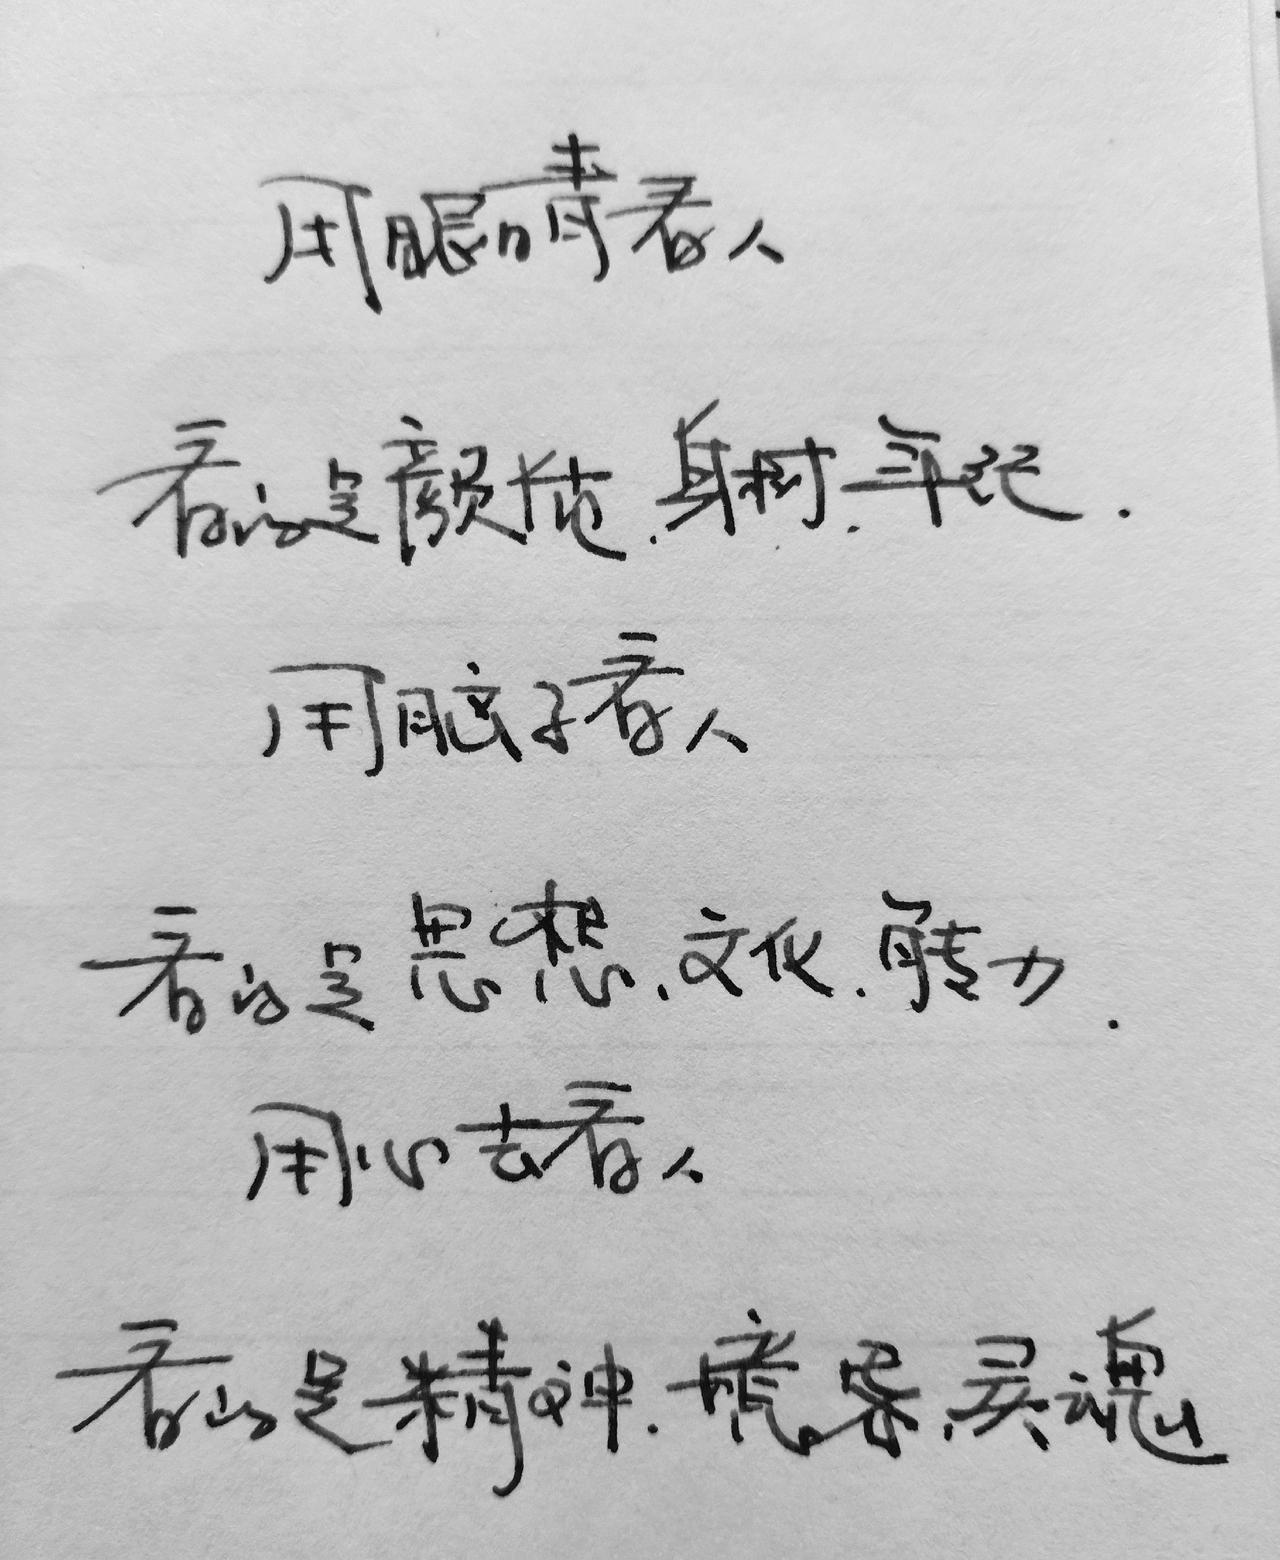 用眼睛看人
看的是颜值.身材.年纪.
用脑子看人
看的是思想.文化.能力.
用心去看人
看的是精神.境界.灵魂